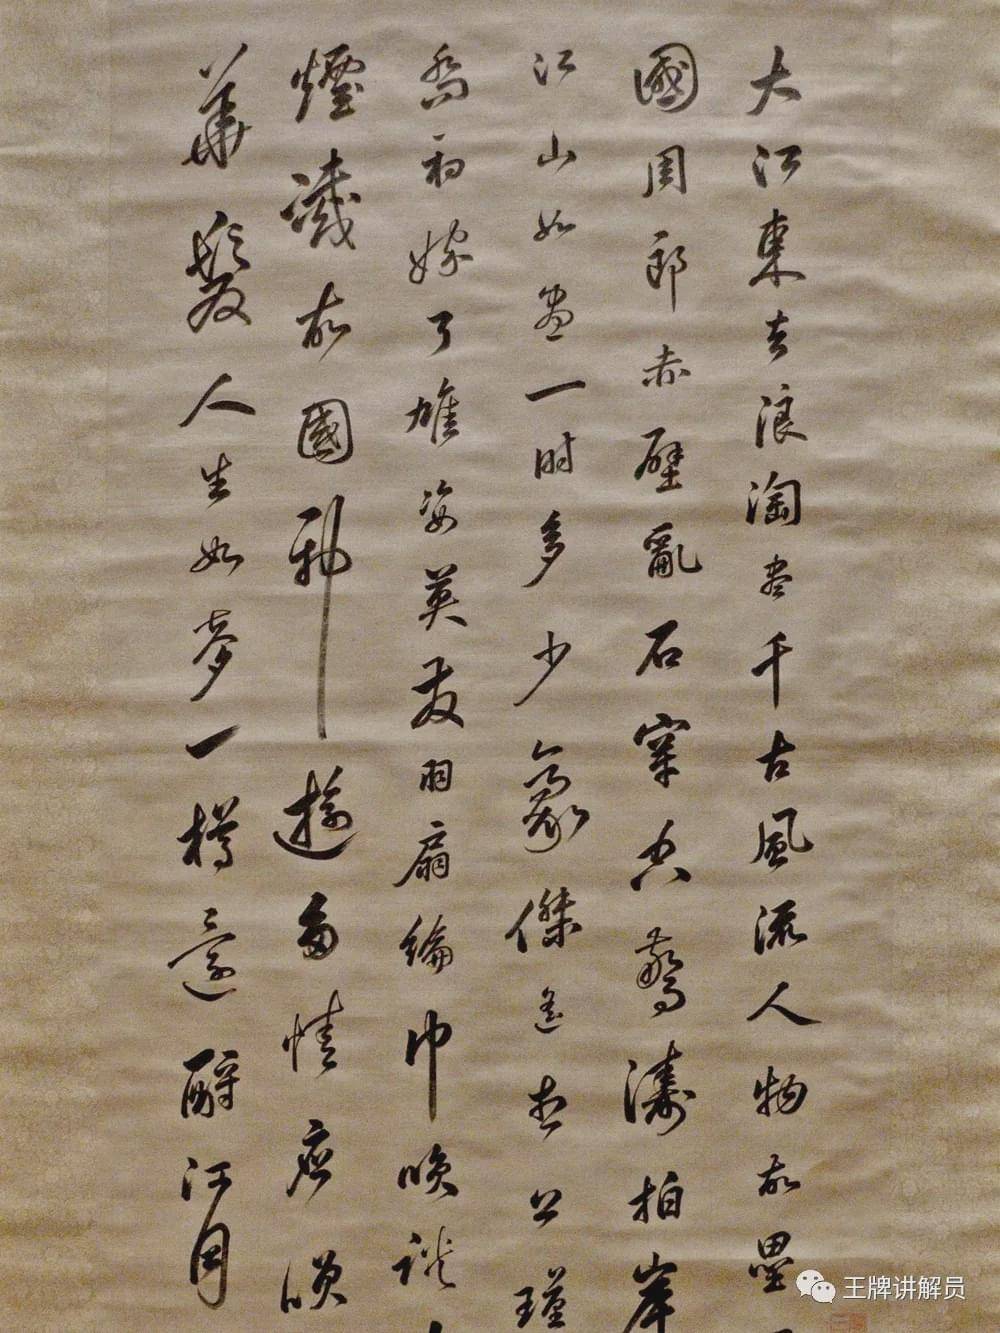 大江東去浪淘盡千古風流人物故壘
國周郎赤壁亂石穿空驚濤拍岸
江山如畫一時多少豪傑遙想公瑾
喬初嫁了雄姿英發羽扇綸巾咲談
煙滅故國神遊多情應咲
華髮人生如夢一樽還酹江月
王牌讲解员